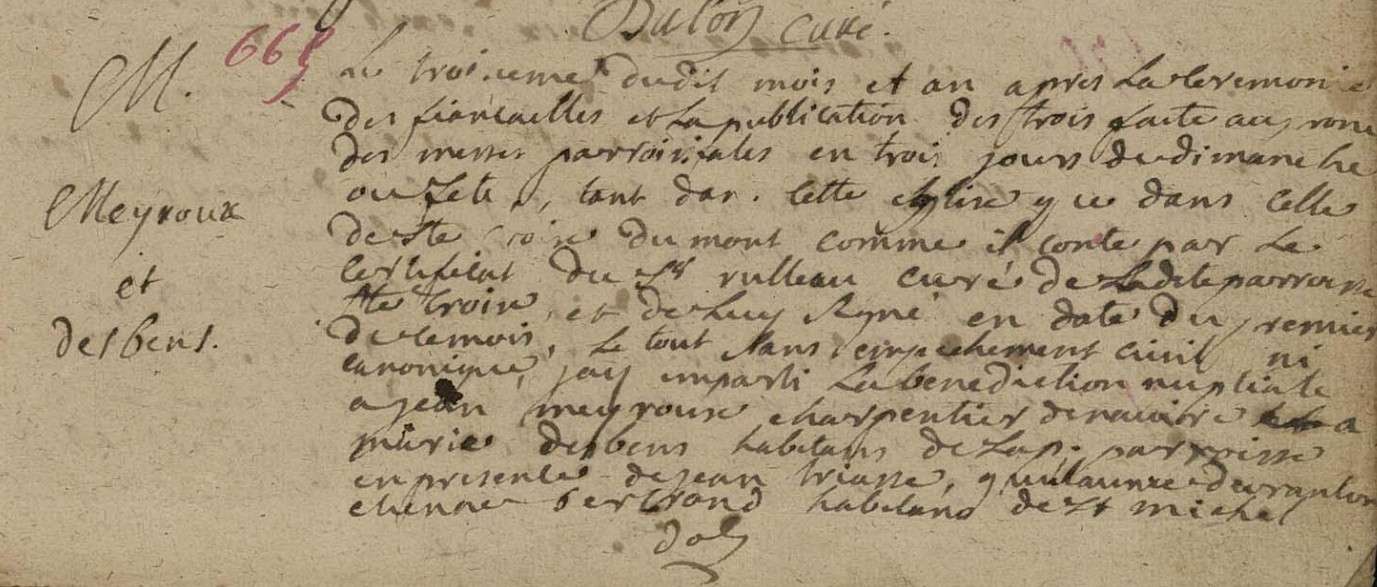 Dulon curé.
M.
668
Meyroux
et
desbens.
Le troisieme dudit mois et an apres la ceremonie
des fiancailles et la publication des trois faite au prone
des messes parroissiales en trois jours de dimanche
ou fete, tant dan. cette eglise que dans celle
de ste croix du mont comme il conte par le
certificat du Sr rulleau curé de ladite parroisse
ste croix, et de luy signé en date du premier
de ce mois, le tout sans empechement civil ni
canonique, jay imparti la benediction nuptiale
a jean meyroux charpentier de navire a
marie desbens habitans de la p. parroisse
en presence de jean triasse, guilaume
etienne bertrand habitans de st michel